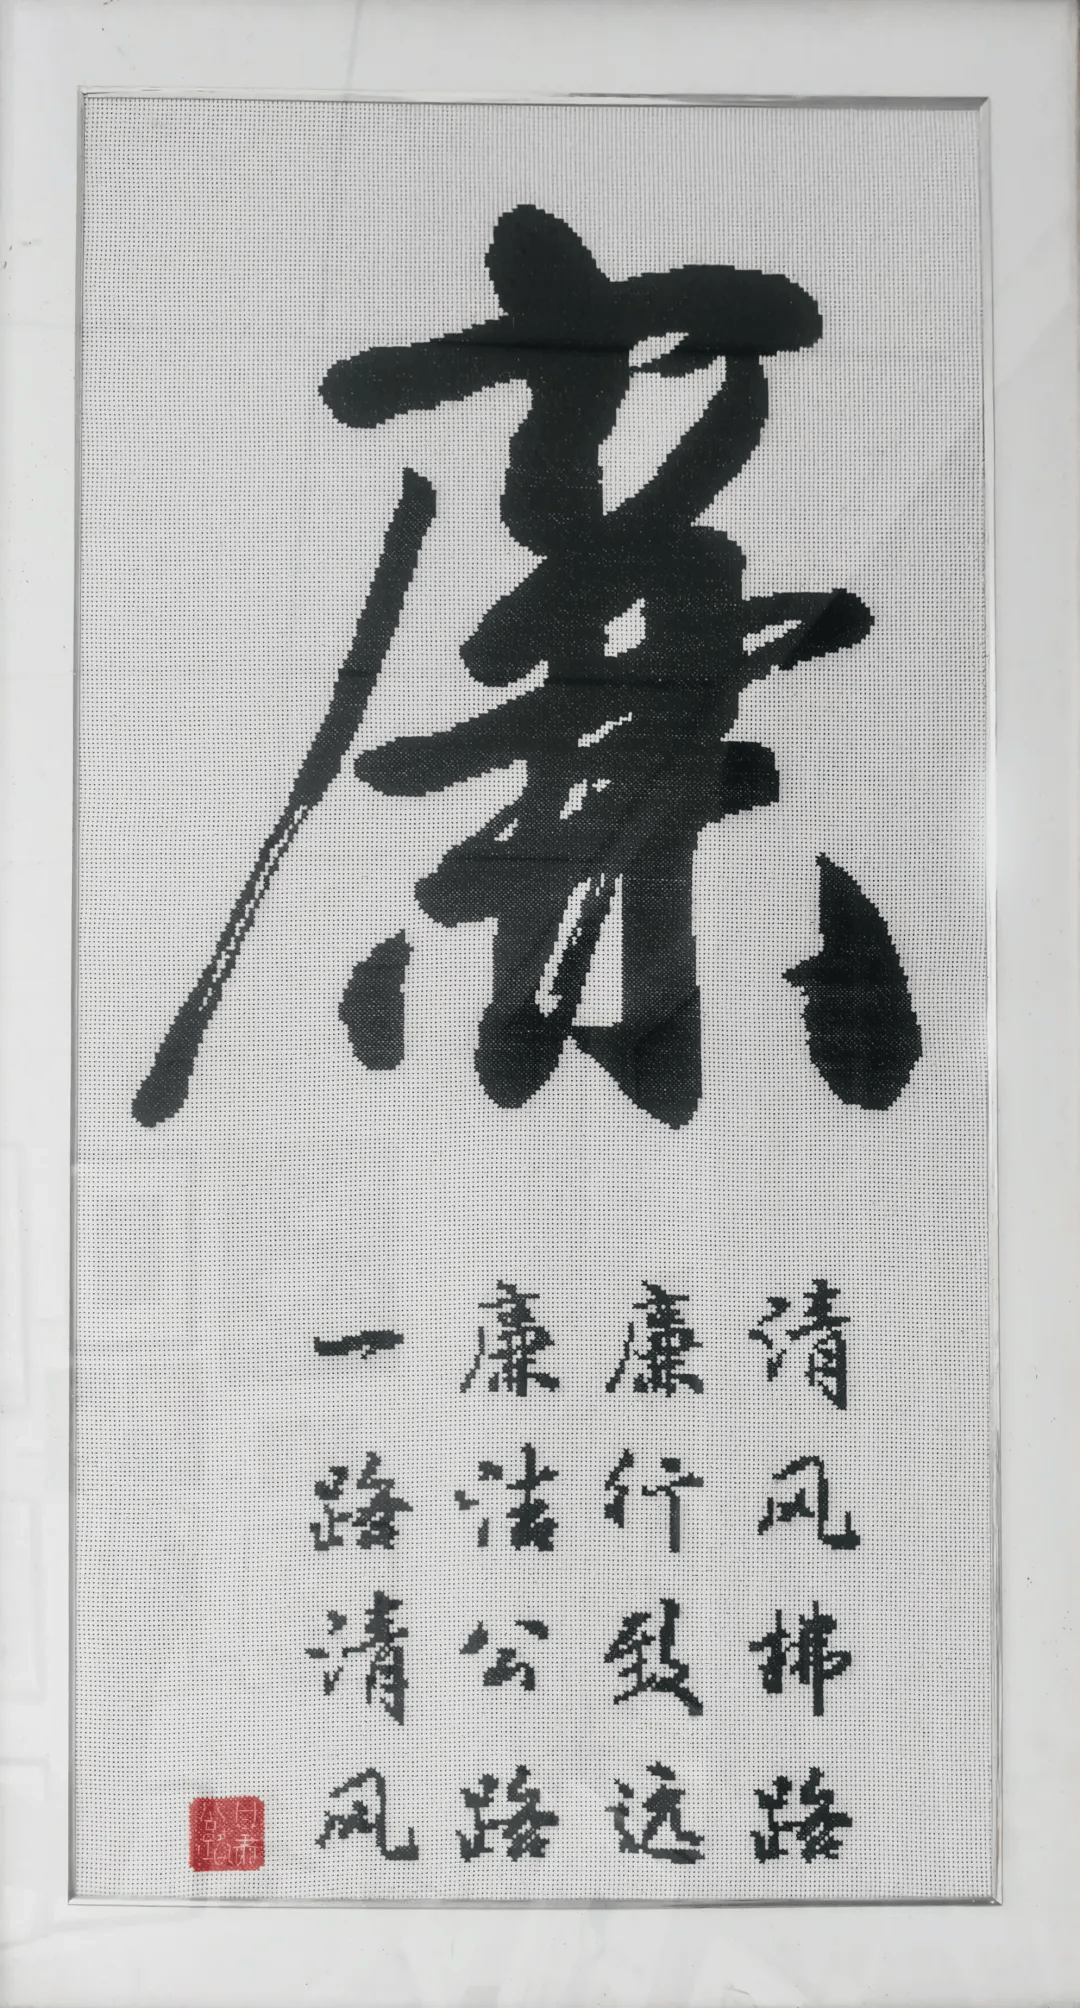 廉
清风拂路
廉行致远
廉洁公路
一路清风